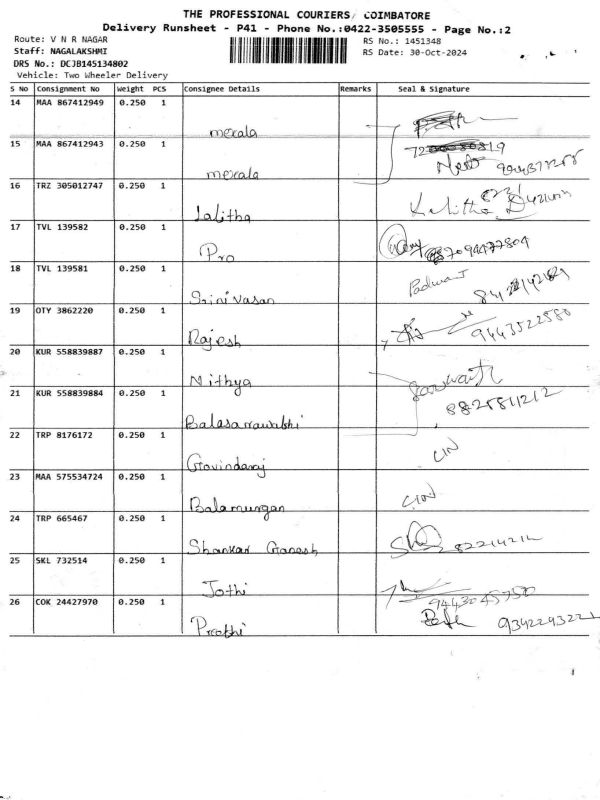 THE PROFESSIONAL COURIERS, COIMBATORE
Delivery Runsheet - P41 - Phone No.:0422-3505555 - Page No.:2
Route: V N R NAGAR
RS No.: 1451348
Staff: NAGALAKSHMI
RS Date: 30-Oct-2024
DRS No.: DCJB145134802
Vehicle: Two Wheeler Delivery
S No Consignment No Weight PCS Consignee Details Remarks Seal & Signature
14 MAA 867412949 0.250 1
merala
15 MAA 867412943 0.250 1
merala
16 TRZ 305012747 0.250 1
Lalitha Kalitha
17 TVL 139582 0.250 1
Pro
18 TVL 139581 0.250 1
Srinivasan
19 OTY 3862220 0.250 1
Rajesh 9443522580
20 KUR 558839887 0.250 1
Nithya
21 KUR 558839884 0.250 1
8825811212
22 TRP 8176172 0.250 1
Govindaraj
23 MAA 575534724 0.250 1
Balamurugan
24 TRP 665467 0.250 1
Shankar Ganesh
25 SKL 732514 0.250 1
Jothi
26 COK 24427970 0.250 1
9342293221